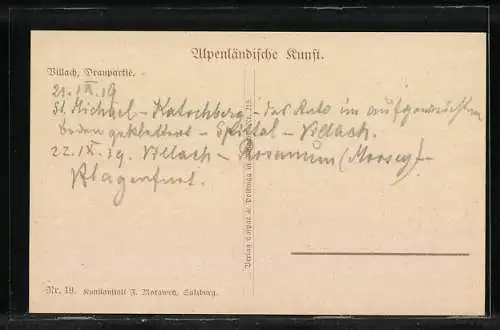 Alpenländische Kunst.
Villach, Draupartie.
21. IX. 19
St. Michael – Katschberg – das Rad im aufgeweichten
Boden geklettert – Spittal – Villach.
22. IX. 19. Villach – (Moosey) –
Klagenfurt.
Verlag Caspar
Nr. 19. Kunstanstalt F. Morawetz, Salzburg.